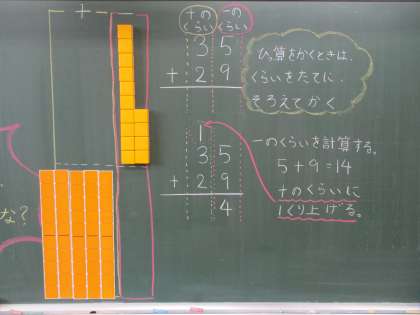 十
十の
くらい
一の
くらい
3 5
+ 2 9
ひっ算をかくときは、
くらいをたてに
そろえてかく
1
3 5
+ 2 9
4
一のくらいを計算する。
5+9=14
十のくらいに
1くり上げる。
な?